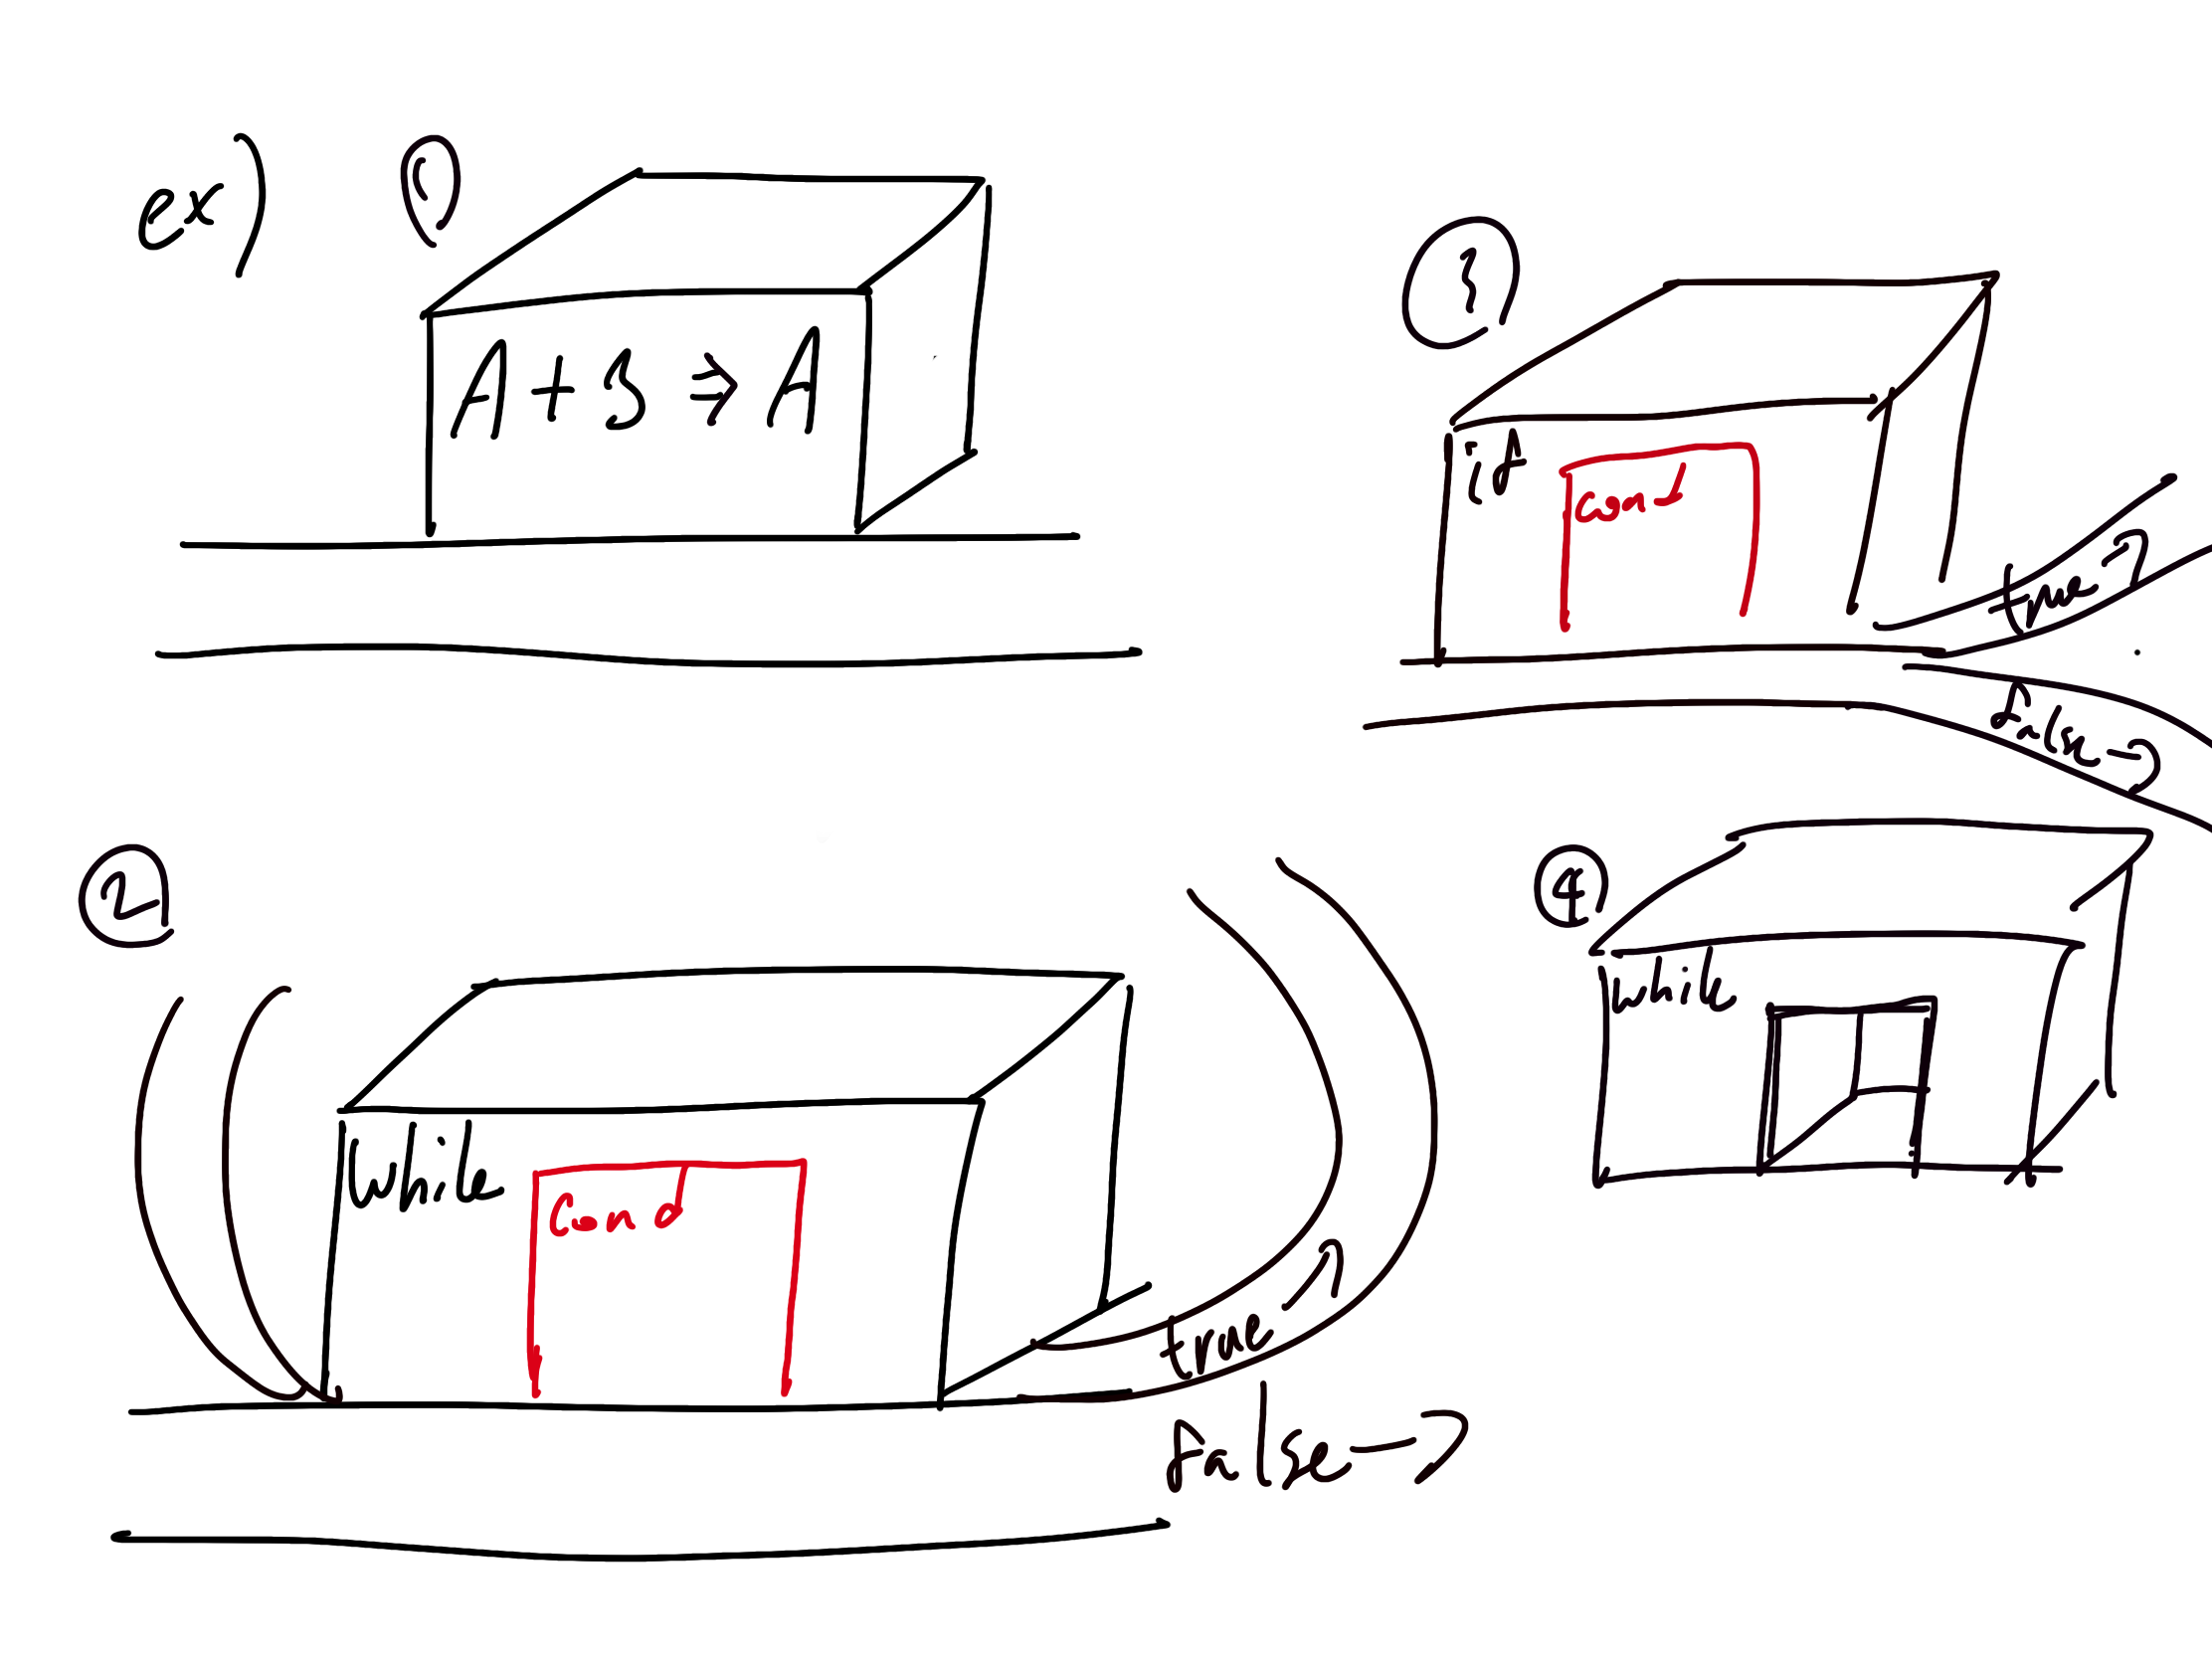 ex)
①
A + B ⇒ A
③
if
cond
true →
false →
②
while
cond
true →
false →
④
while